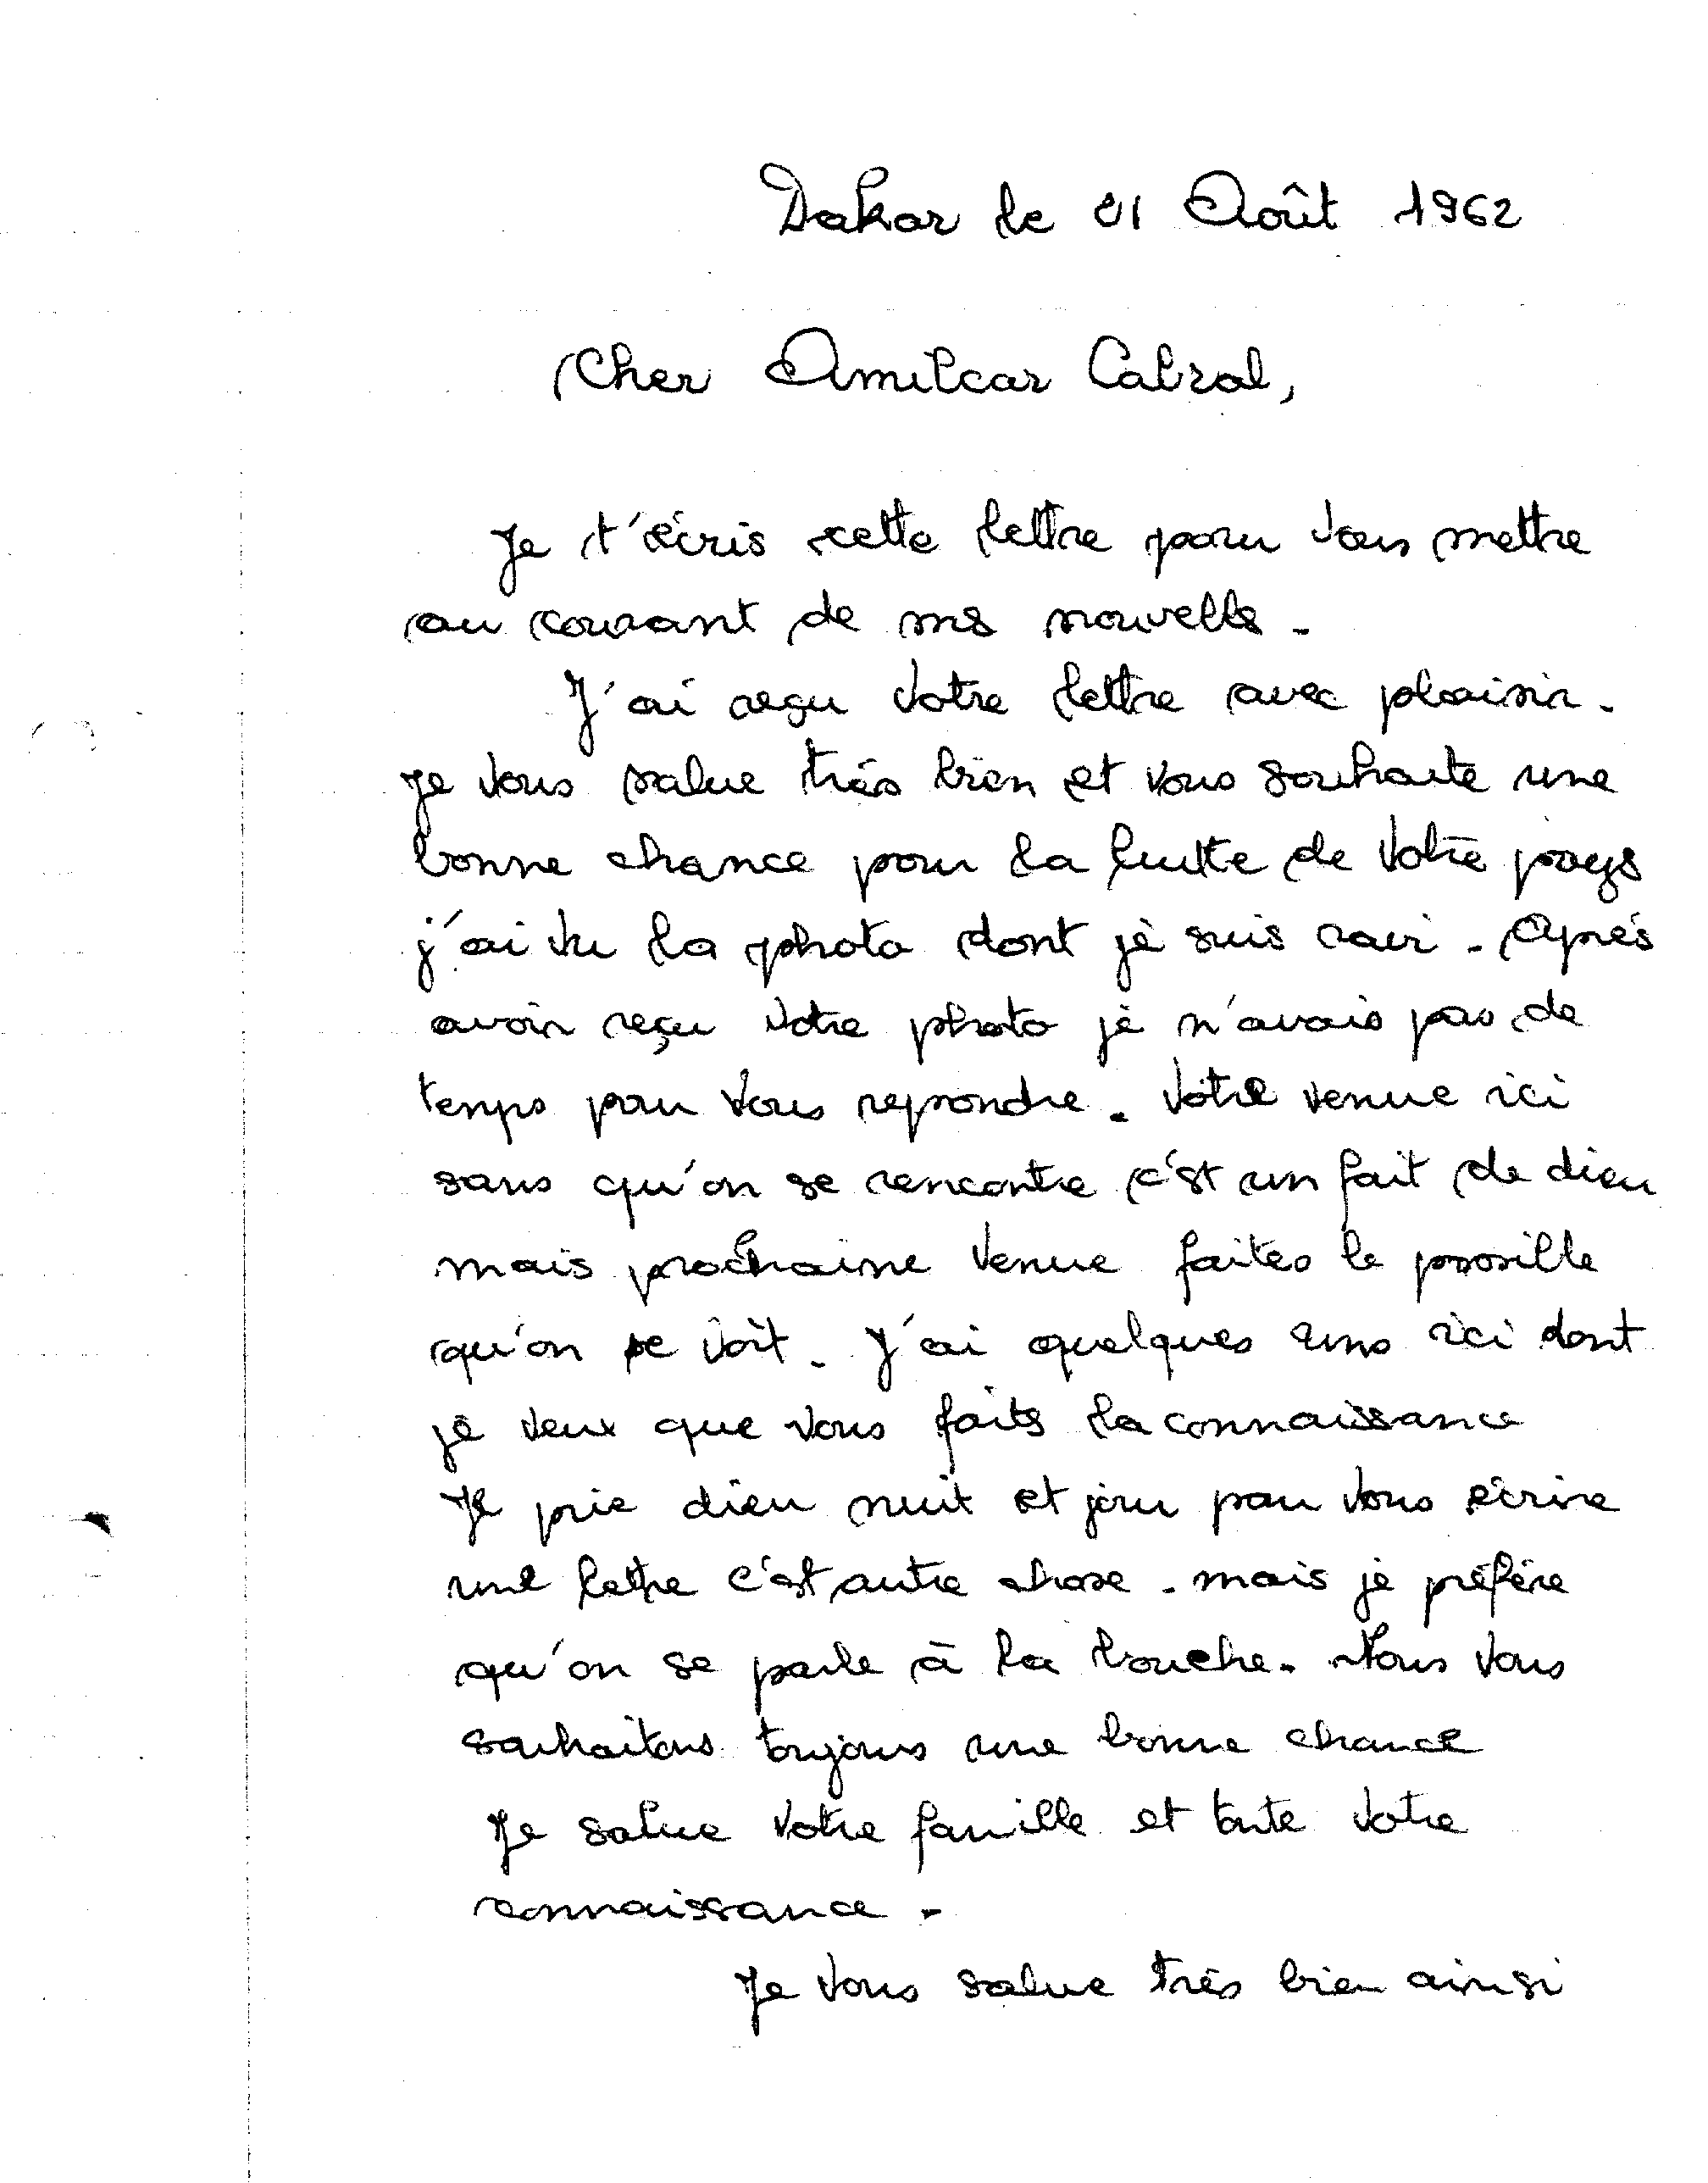 Dakar le 01 Août 1962
Cher Amilcar Cabral,
Je t'écris cette lettre pour vous mettre
au courant de mes nouvelles.
J'ai reçu votre lettre avec plaisir.
Je vous salue très bien et vous souhaite une
bonne chance pour la lutte de votre pays
j'ai vu la photo dont je suis ravi. Après
avoir reçu votre photo je n'avais pas de
temps pour vous repondre. Votre venue ici
sans qu'on se rencontre c'est un fait de dieu
mais prochaine venue faites le possible
qu'on se voit. J'ai quelques uns ici dont
je veux que vous faites la connaissance
Je prie dieu nuit et jour pour vous écrire
une lettre c'est autre chose. mais je préfère
qu'on se parle à la bouche. Nous vous
souhaitons toujours une bonne chance
Je salue votre famille et toute votre
connaissance.
Je vous salue très bien ainsi